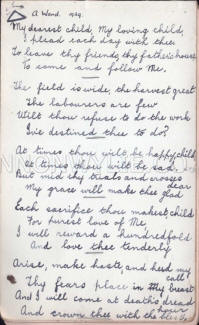 A Word. 1929.
My dearest child, My loving child,
I plead each day with thee
To leave thy friends, thy father's house
To come and follow Me.
The field is wide, the harvest great
The labourers are few
Wilt thou refuse to do the work
I've destined thee to do?
At times thou wilt be happy, child
At times thou wilt be sad.
But mid thy trials and crosses dear
My grace will make thee glad
Each sacrifice thou makest, child
For purest love of Me
I will reward a hundredfold
And love thee tenderly
Arise, make haste, and heed my call
Thy fears place in My breast
And I will come at death's dread hour
And crown thee with the blest